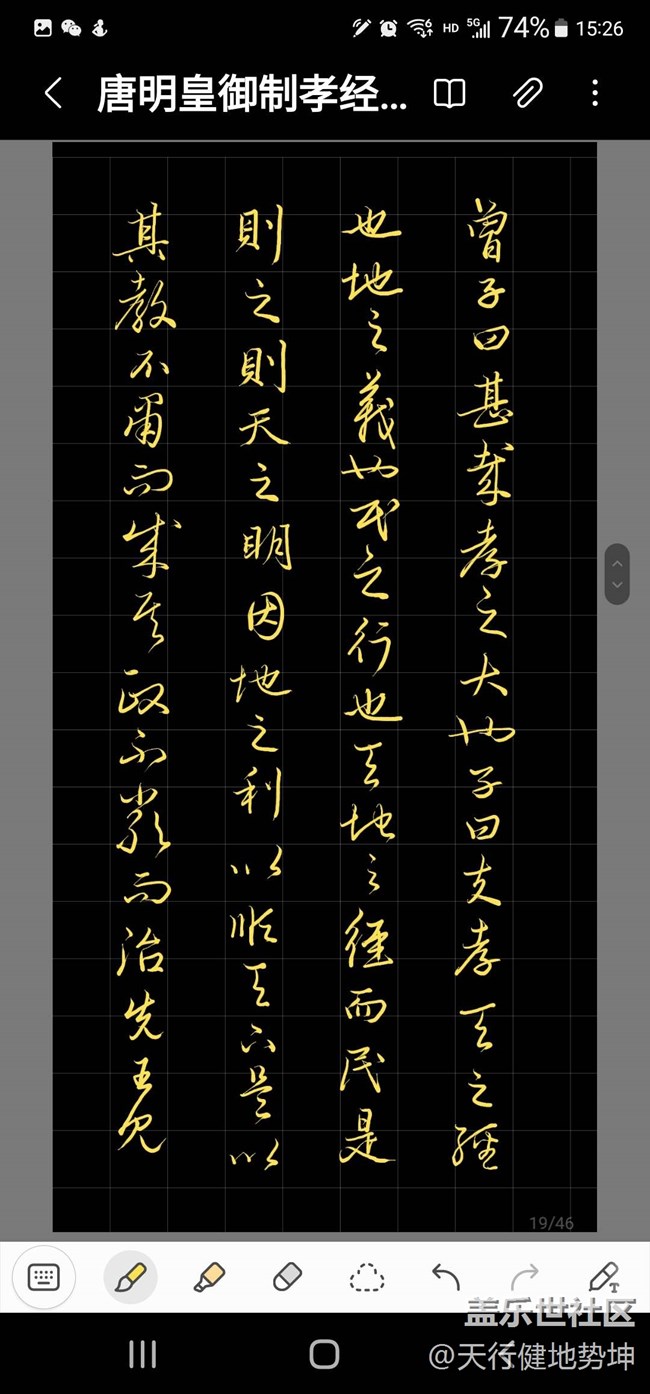 74% 15:26
唐明皇御制孝经...
曾子曰甚哉孝之大也子曰夫孝天之經
也地之義也民之行也天地之經而民是
則之則天之明因地之利以順天下是以
其教不肅而成其政不嚴而治先王見
19/46
盖乐世社区
@天行健地势坤